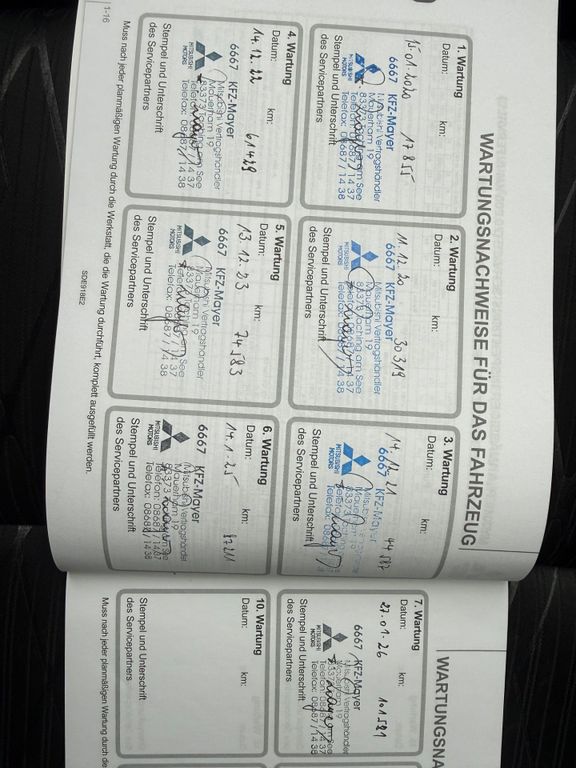 WARTUNGSNACHWEISE FÜR DAS FAHRZEUG
1. Wartung
Datum: km:
15.01.2020 17855
6667 KFZ-Mayer
Mitsubishi Vertragshändler
Mauerham 19
83373 Taching am See
Telefon: 08687/14 37
Telefax: 08687/14 38
MITSUBISHI
MOTORS
Stempel und Unterschrift
des Servicepartners
2. Wartung
Datum: km:
11.12.20 30319
6667 KFZ-Mayer
Mitsubishi Vertragshändler
Mauerham 19
83373 Taching am See
Telefon: 08687/14 37
Telefax: 08687/14 38
MITSUBISHI
MOTORS
Stempel und Unterschrift
des Servicepartners
3. Wartung
Datum: km:
14.12.21 44587
6667 KFZ-Mayer
MITSUBISHI
MOTORS
Stempel und Unterschrift
des Servicepartners
4. Wartung
Datum: km:
14.12.22 61429
6667 KFZ-Mayer
Mitsubishi Vertragshändler
Mauerham 19
83373 Taching am See
Telefon: 08687/14 37
Telefax: 08687/14 38
MITSUBISHI
MOTORS
Stempel und Unterschrift
des Servicepartners
5. Wartung
Datum: km:
13.12.23 74583
6667 KFZ-Mayer
Mitsubishi Vertragshändler
Mauerham 19
See
14 37
14 38
MITSUBISHI
MOTORS
Stempel und Unterschrift
des Servicepartners
6. Wartung
Datum: km:
14.1.25 87221
6667 KFZ-Mayer
Mitsubishi Vertragshändler
Mauerham 19
83373 See
Telefon: 08687/1437
Telefax: 08687/1438
MITSUBISHI
MOTORS
Stempel und Unterschrift
des Servicepartners
Muss nach jeder planmäßigen Wartung durch die Werkstatt, die die Wartung durchführt, komplett ausgefüllt werden.
1-16
SDE918E2
WARTUNGSNA
7. Wartung
Datum: km:
27.01.26 101581
6667 KFZ-Mayer
Mauerham 19
Telefon: 08687/14 37
Telefax: 08687/14 38
MITSUBISHI
MOTORS
Stempel und Unterschrift
des Servicepartners
10. Wartung
Datum: km:
Stempel und Unterschrift
des Servicepartners
Muss nach jeder planmäßigen Wartung durch die